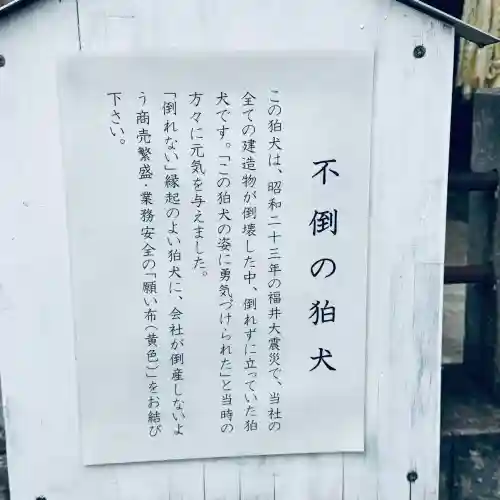 不倒の狛犬
この狛犬は、昭和二十三年の福井大震災で、当社の
全ての建造物が倒壊した中、倒れずに立っていた狛
犬です。「この狛犬の姿に勇気づけられた」と当時の
方々に元気を与えました。
「倒れない」縁起のよい狛犬に、会社が倒産しないよ
う商売繁盛・業務安全の「願い布(黄色)」をお結び
下さい。